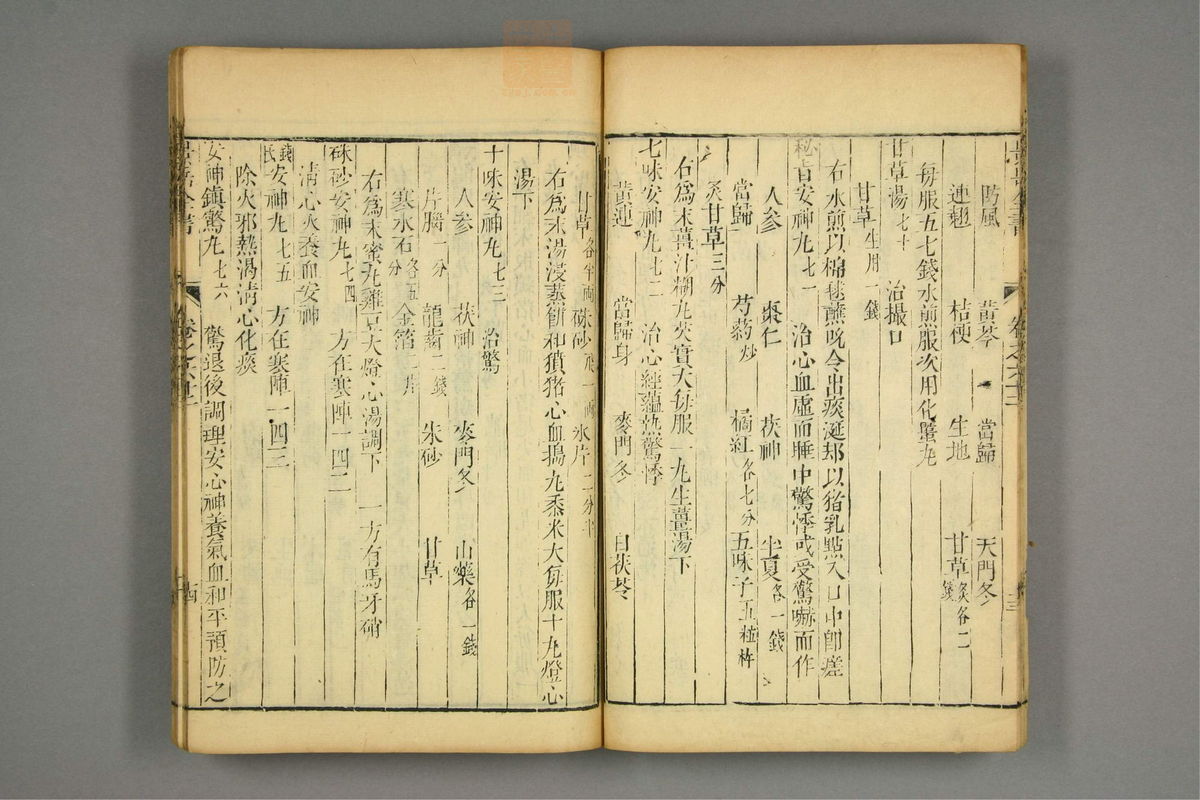 防風 黃芩 當歸 天門冬
連翹 桔梗 生地 甘草炙各二錢
每服五七錢水煎服次用化蟹丸
甘草湯七十 治撮口
甘草生用一錢
右水煎以棉毬蘸吮令出痰涎却以猪乳點入口中卽瘥
秘旨安神丸七一 治心血虛而睡中驚悸或受驚嚇而作
人參 棗仁 茯神 半夏各一錢
當歸 芍藥炒 橘紅各七分 五味子五粒杵
炙甘草三分
右爲末薑汁糊丸芡實大每服一丸生薑湯下
七味安神丸七二 治心經蘊熱驚悸
黃連 當歸身 麥門冬 白茯苓
甘草各半兩 硃砂飛一兩 氷片二分半
右爲末湯浸蒸餅和獖猪心血搗丸黍米大每服十丸燈心
湯下
十味安神丸七三 治驚
人參 茯神 麥門冬 山藥各一錢
片腦一分 龍齒二錢 朱砂 甘草
寒水石各五分 金箔二片
右爲末蜜丸雞豆大燈心湯調下 一方有馬牙硝
硃砂安神丸七四 方在寒陣一四二
淸心火養血安神
錢氏安神丸七五 方在寒陣一四三
除火邪熱渴淸心化痰
安神鎭驚丸七六 驚退後調理安心神養氣血和平預防之